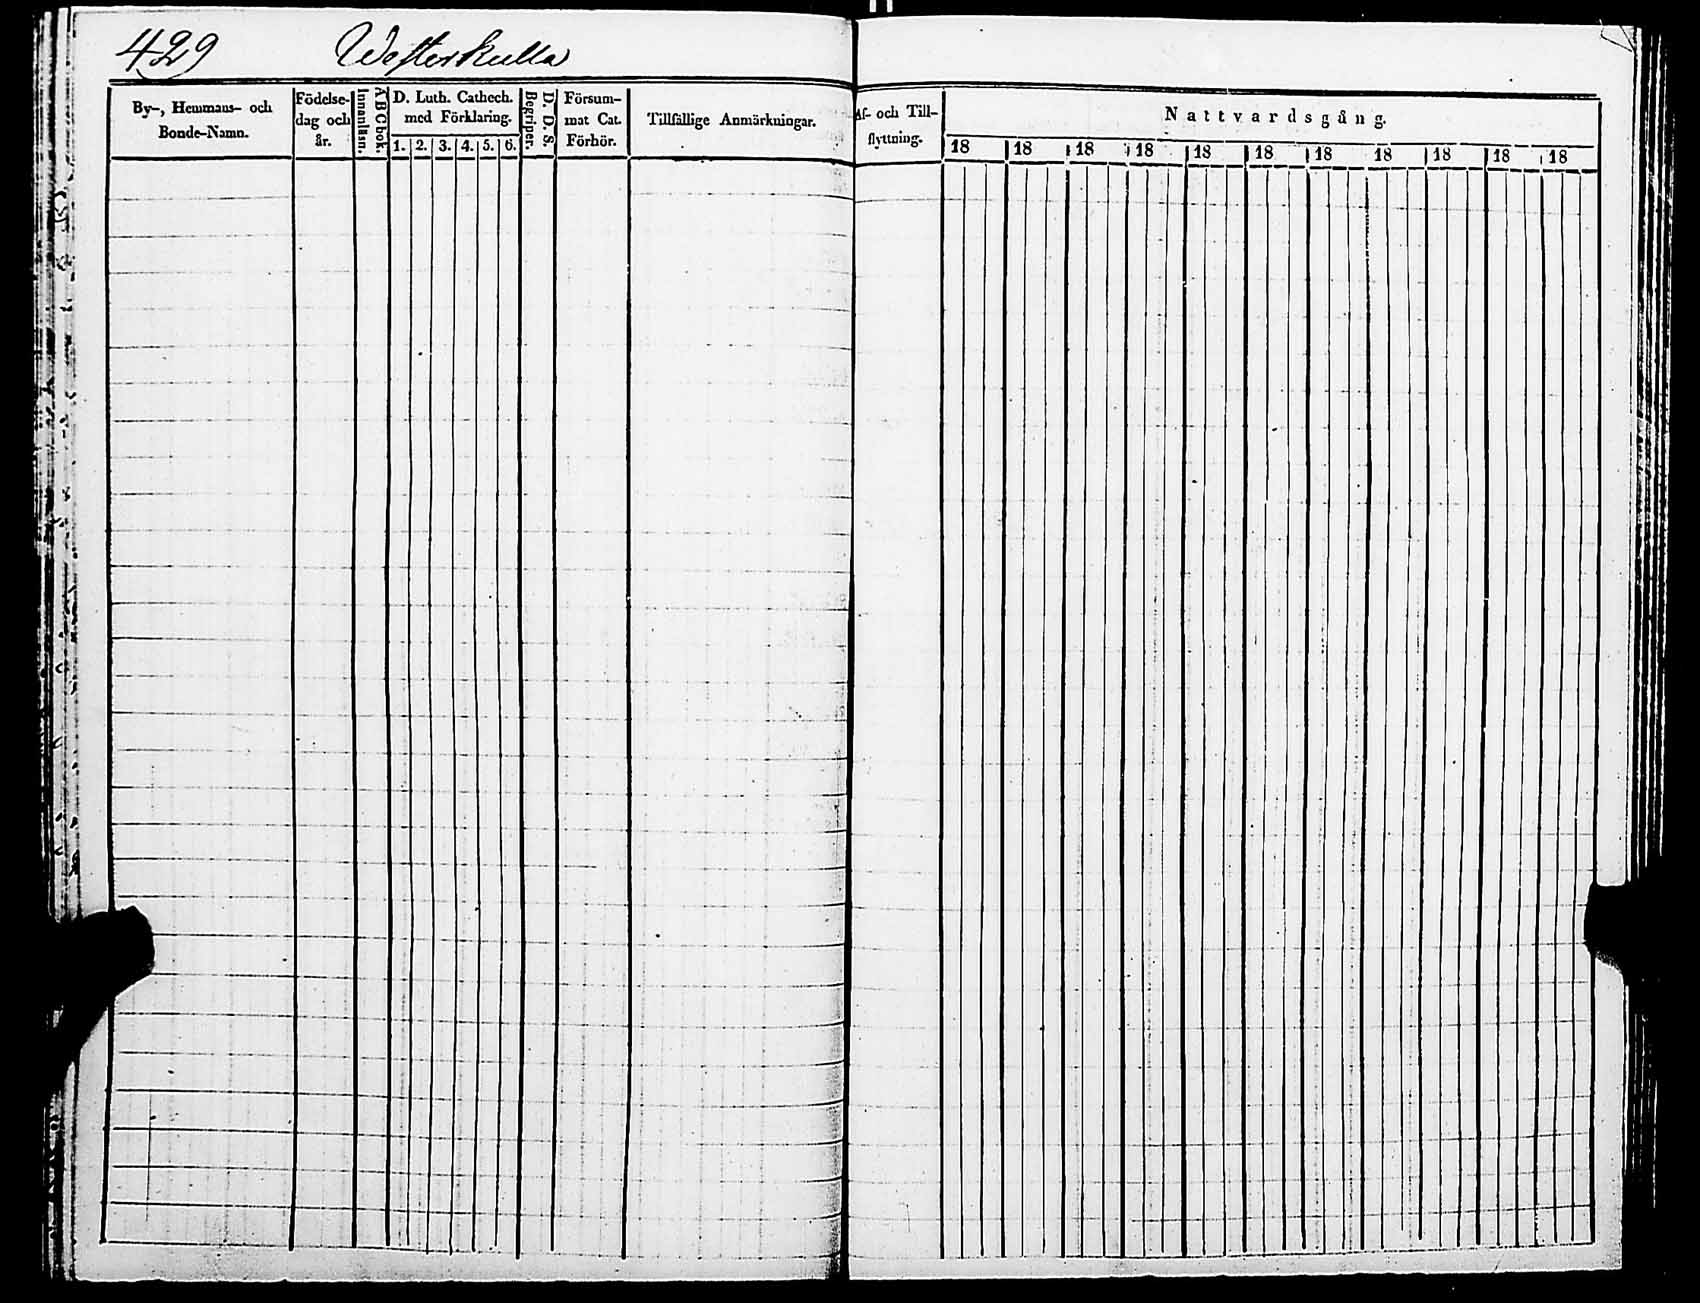 429 Westerkulla
By-, Hemmans- och
Bonde-Namn.
Födelse-
dag och
år.
Innanläsn.
A B C bok.
D. Luth. Cathech.
med Förklaring.
1. 2. 3. 4. 5. 6.
Begriper.
D. D. S.
Försum-
mat Cat.
Förhör.
Tillfällige Anmärkningar.
Af- och Till-
flyttning.
Nattvardsgång.
18 18 18 18 18 18 18 18 18 18 18